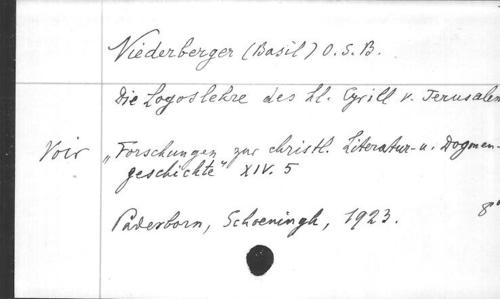 Niederberger (Basil) O.S.B.
Die Logoslehre des hl. Cyrill v. Jerusalem
Voir „Forschungen zur christl. Literatur- u. Dogmen-
geschichte" XIV. 5
Paderborn, Schoeningh, 1923. 8°